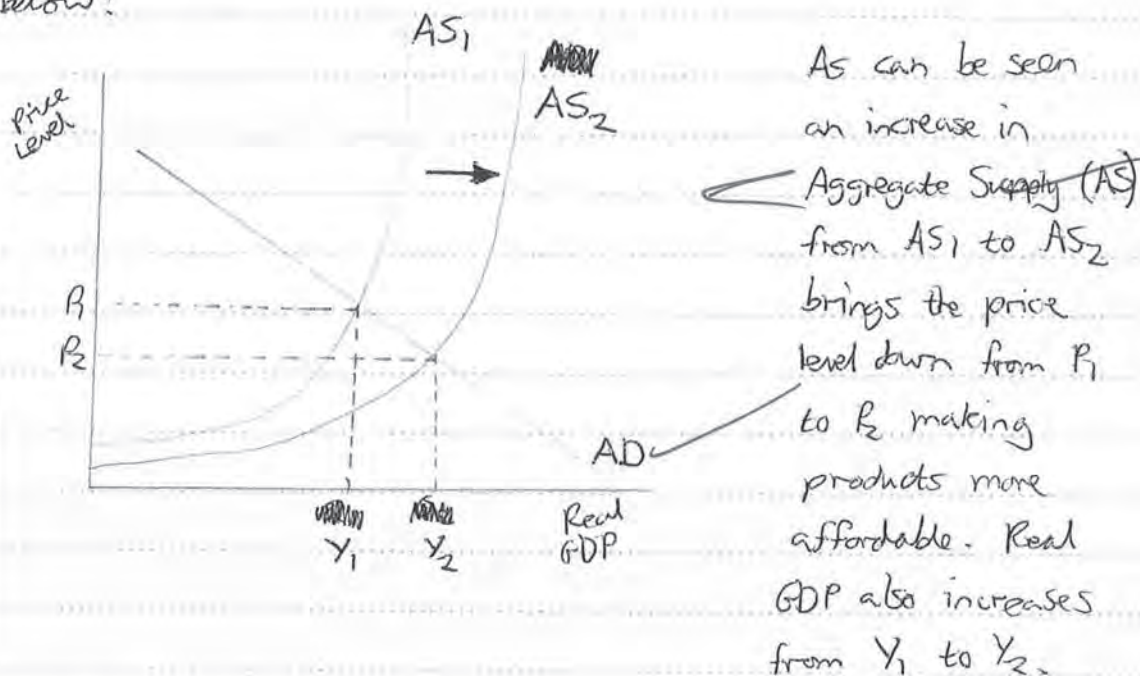 below:
AS₁
AS₂
Price
Level
P₁
P₂
AD
Y₁
Y₂
Real
GDP
As can be seen
an increase in
Aggregate Supply (AS)
from AS₁ to AS₂
brings the price
level down from P₁
to P₂ making
products more
affordable. Real
GDP also increases
from Y₁ to Y₂.